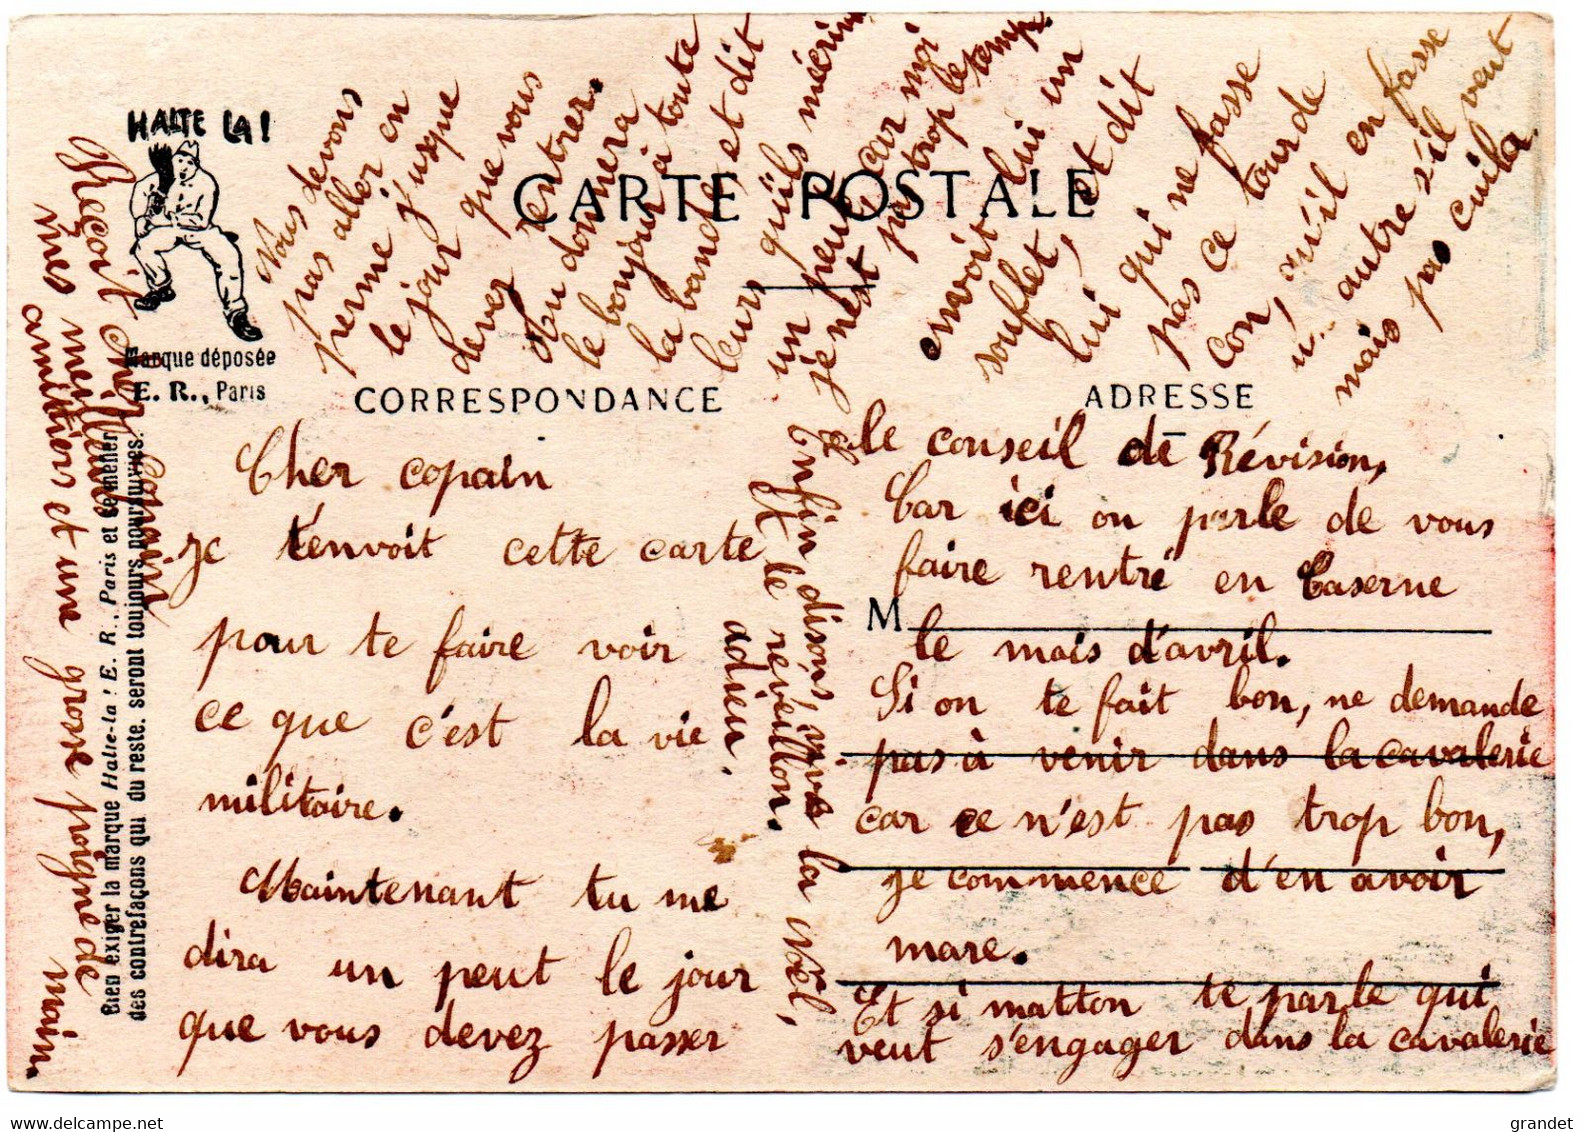 HALTE LA!
Marque déposée
E. R., Paris
CARTE POSTALE
CORRESPONDANCE
ADRESSE
M
Bien exiger la marque Halte-la ! E. R., Paris et se méfier
des contrefaçons qui du reste. seront toujours poursuivies.
Cher copain
je t'envoit cette carte
pour te faire voir
ce que c'est la vie
militaire.
Maintenant tu me
dira un peut le jour
que vous devez passer
le conseil de Révision,
Car ici on parle de vous
faire rentré en Caserne
le mois d'avril.
Si on te fait bon, ne demande
pas à venir dans la cavalerie
car ce n'est pas trop bon,
je commence d'en avoir
mare.
Et si matton te parle qui
veut s'engager dans la cavalerie
envoit lui un
souflet, et dit
lui qui ne fasse
pas ce tour de
con, qu'il en fasse
un autre s'il veut
mais pas cuila
Nous devons
pas aller en
perme jusque
le jour que vous
devez rentrer.
tu donnera
le bonjour à toute
la bande et dit
leurs qu'ils m'écrive
un peu, car moi
je n'est pas trop le temp.
Enfin disons vive la Noël,
et le reveillon.
adieu.
Reçoit cher Copain
mes meilleur
amitiers et une grosse poigne de main.